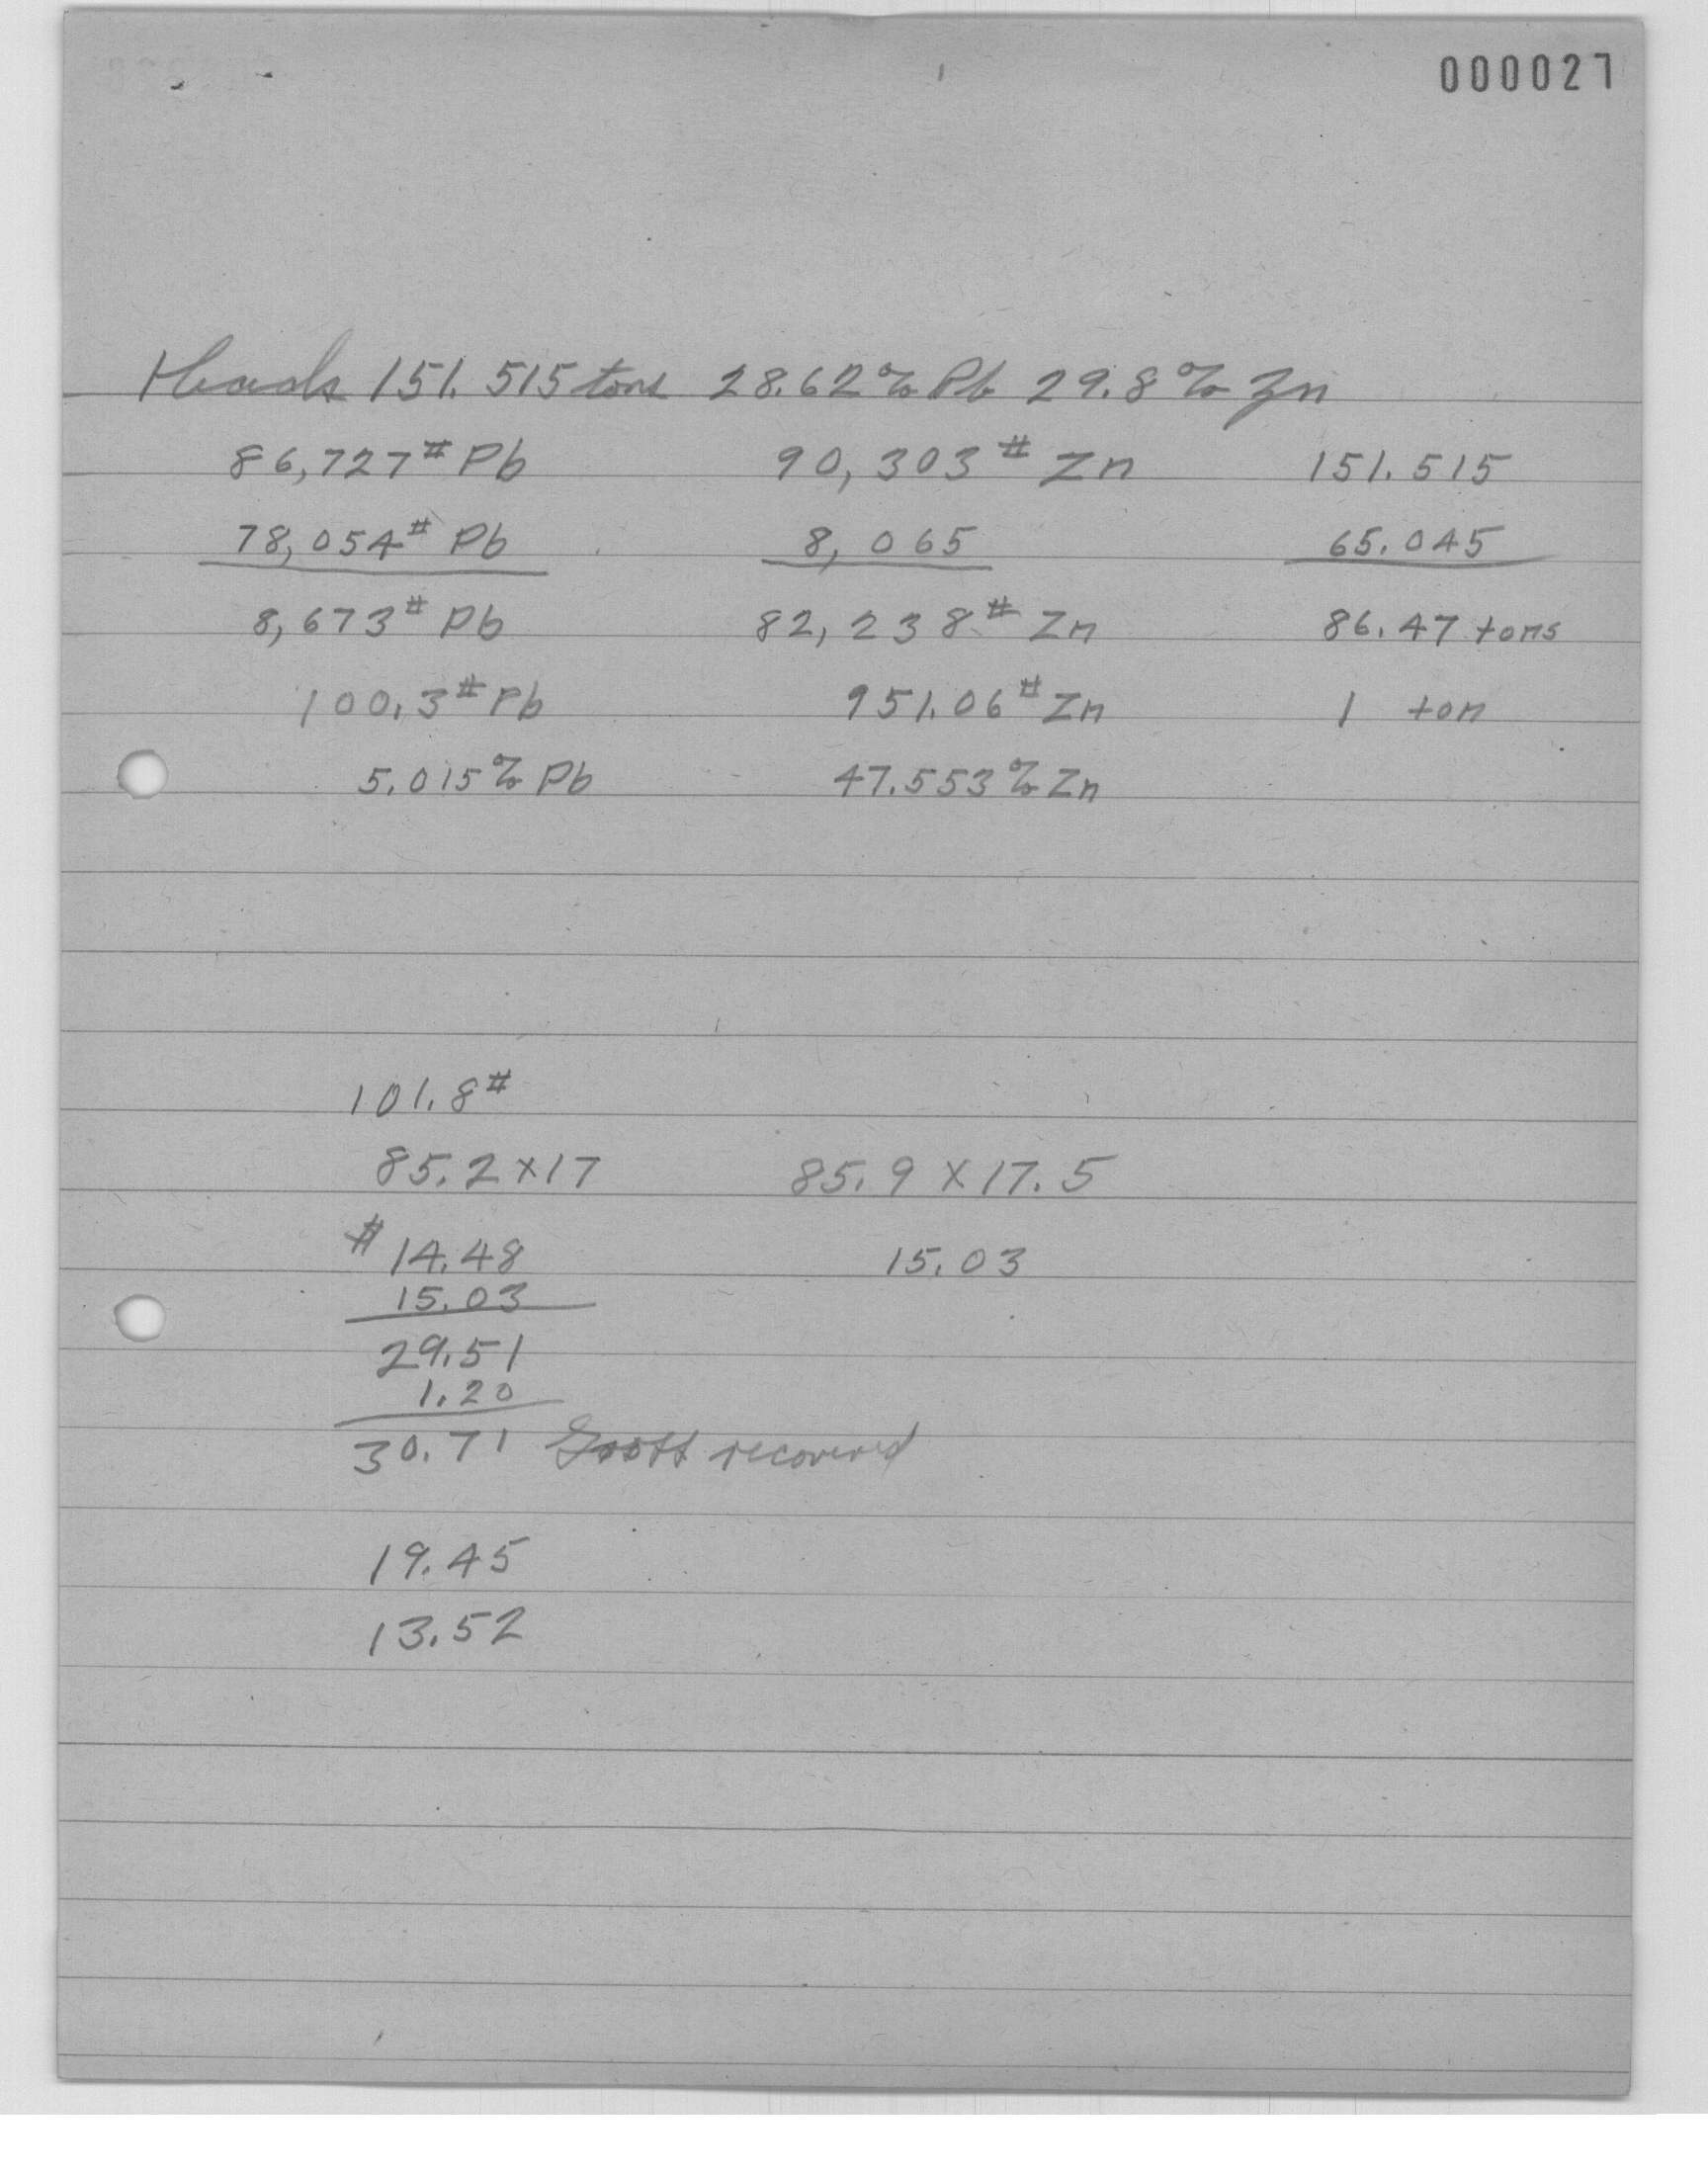 000027
Heads 151.515 tons 28.62% Pb 29.8% Zn
86,727# Pb 90,303# Zn 151.515
78,054# Pb 8,065 65.045
8,673# Pb 82,238# Zn 86.47 tons
100.3# Pb 951.06# Zn 1 ton
5.015% Pb 47.553% Zn
101.8#
85.2 x 17 85.9 x 17.5
# 14.48 15.03
15.03
29.51
1.20
30.71 recovered
19.45
13.52